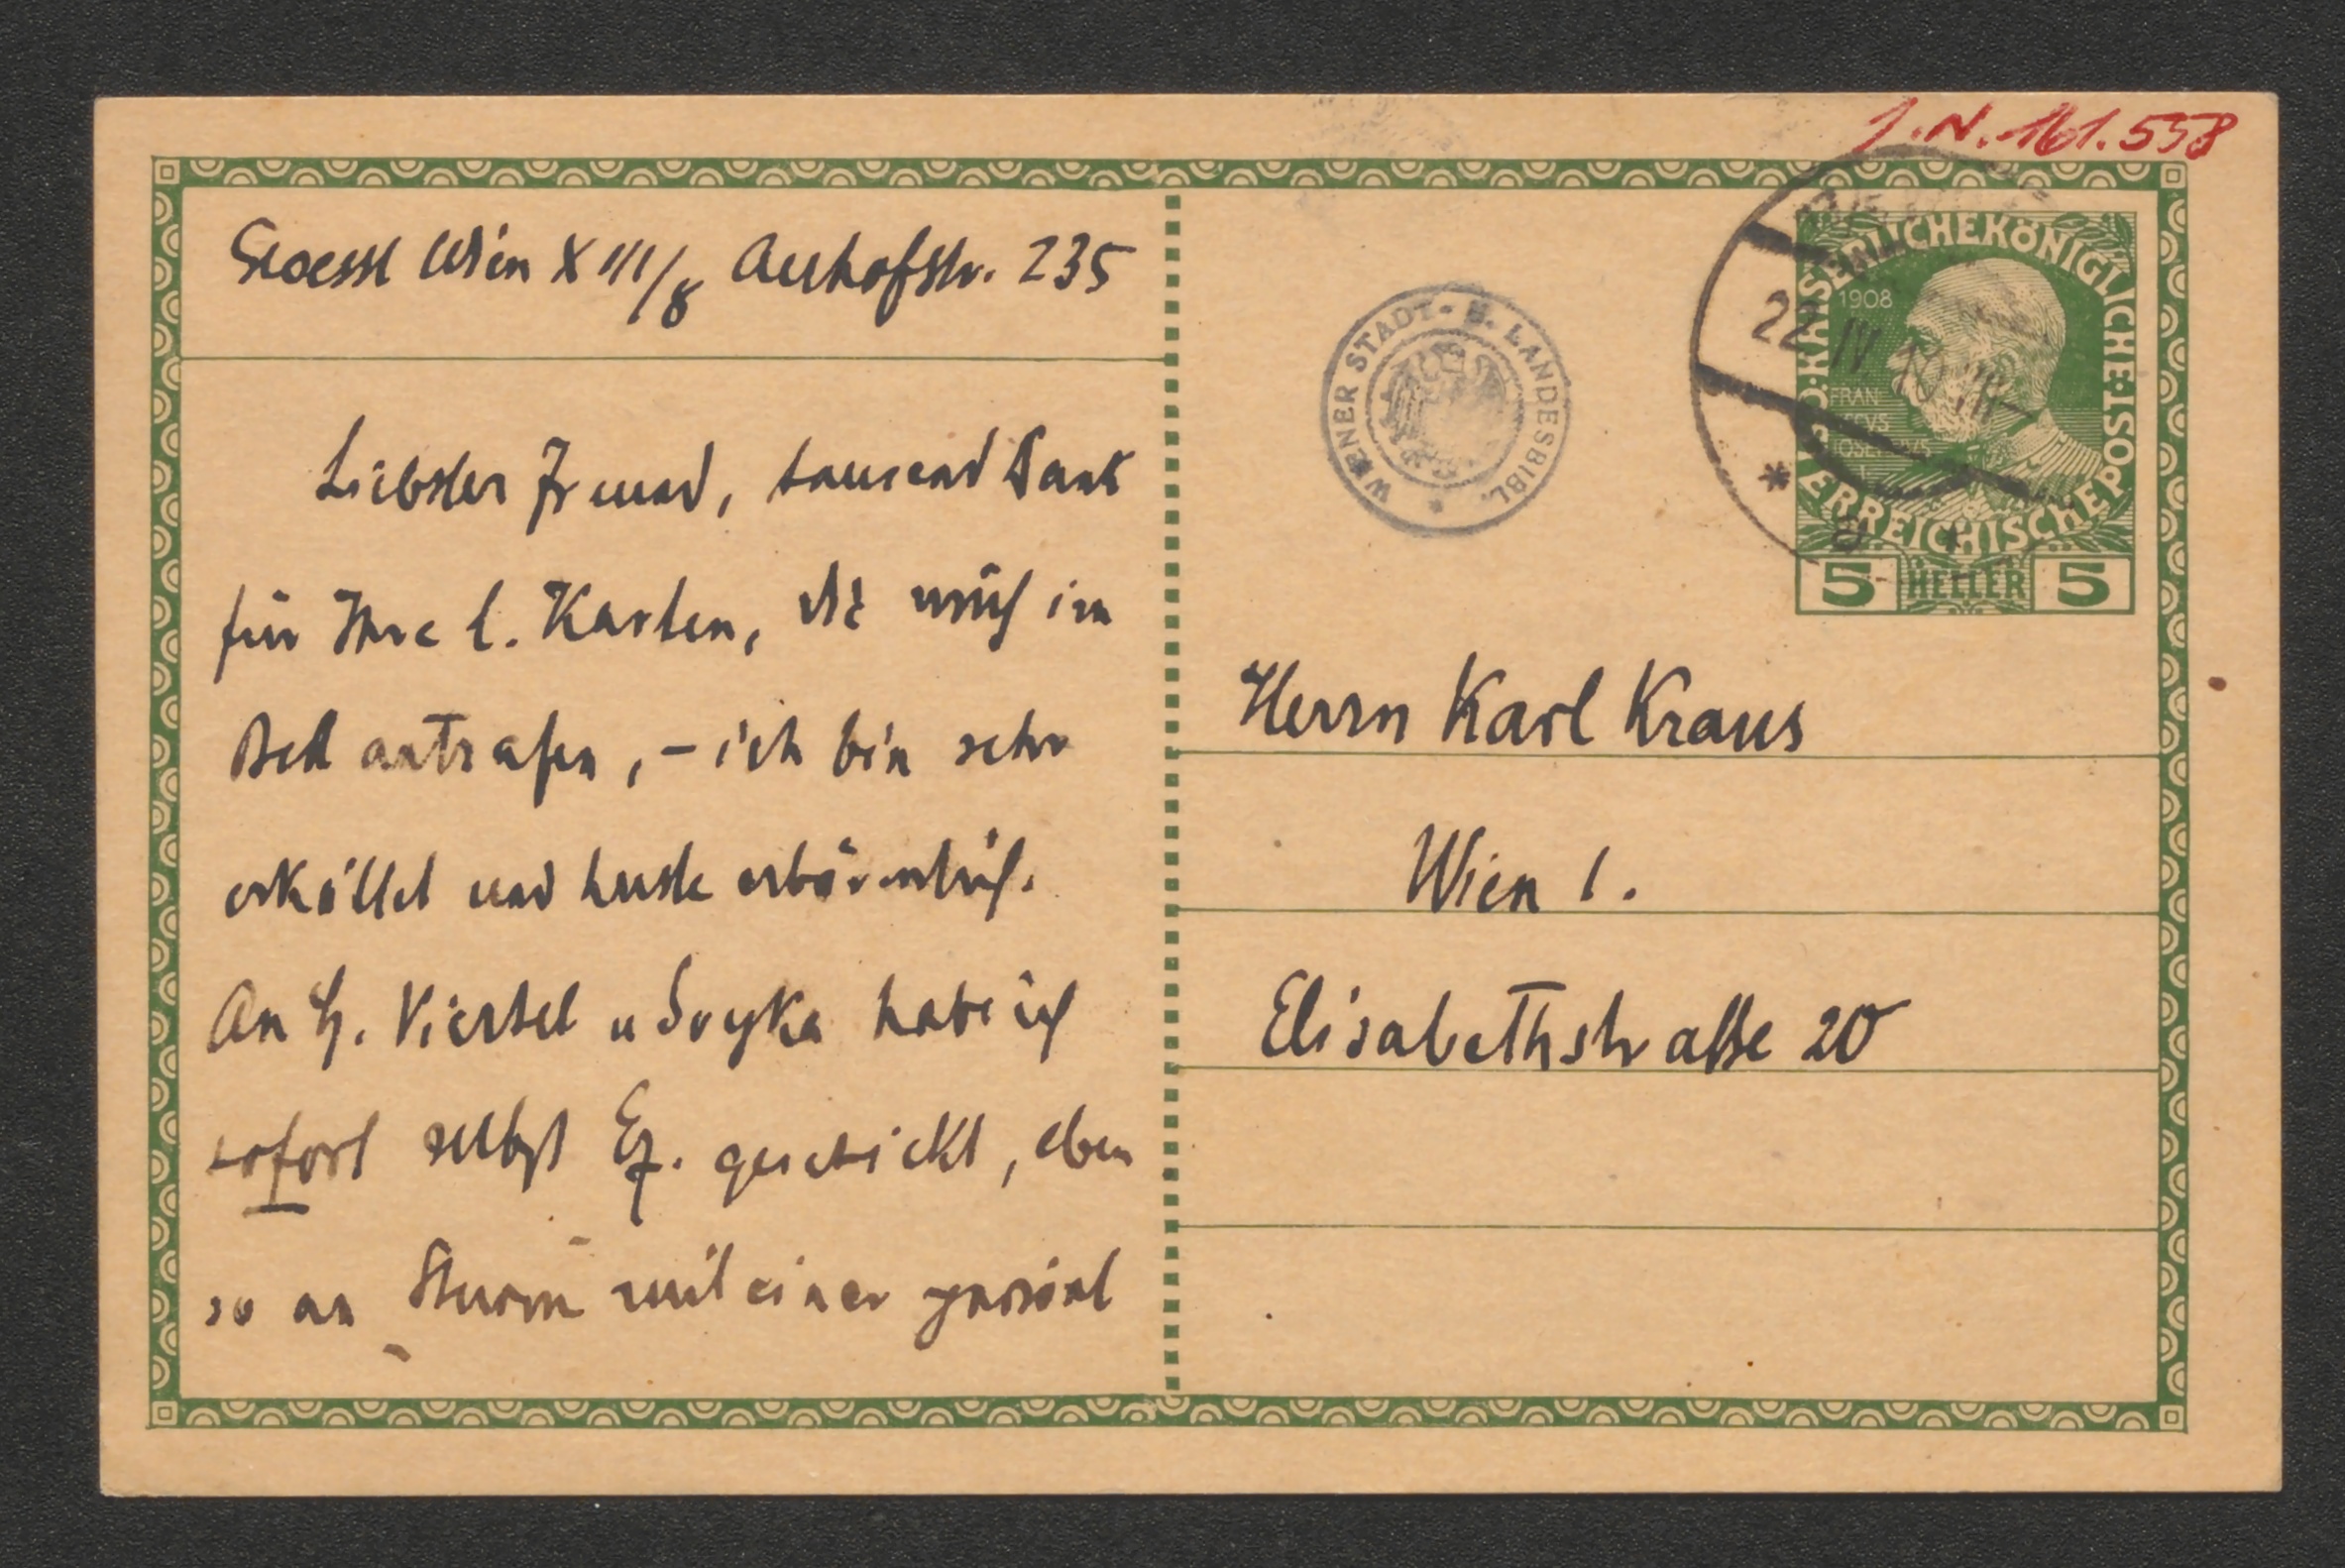 J.N. 161.558
Stoessl Wien XIII/8 Auhofstr. 235
Liebster Freund, tausend Dank
für Ihre l. Karten, die mich im
Bett antrafen, – ich bin sehr
erkältet und huste erbärmlich.
An H. Viertel u Soyka habe ich
sofort selbst Ex. geschickt, eben
so an „Sturm“ mit einer
WIENER STADT- U. LANDESBIBL.
KAISERLICHEKÖNIGLICHE
ÖSTERREICHISCHEPOST
1908
22 IV 10
*
a
5 HELLER 5
Herrn Karl Kraus
Wien 1.
Elisabethstraße 20